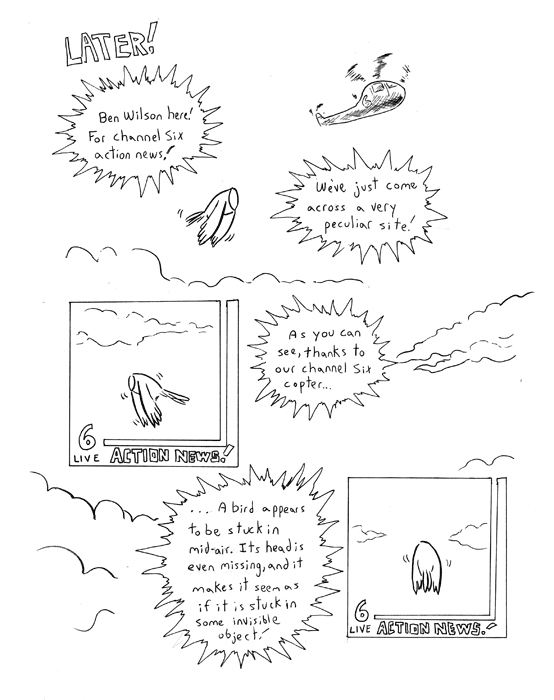 LATER!
Ben Wilson here!
For channel Six
action news!
6
We've just come
across a very
peculiar site!
As you can
see, thanks to
our channel Six
copter...
6
LIVE ACTION NEWS!
... A bird appears
to be stuck in
mid-air. Its head is
even missing, and it
makes it seem as
if it is stuck in
some invisible
object!
6
LIVE ACTION NEWS!